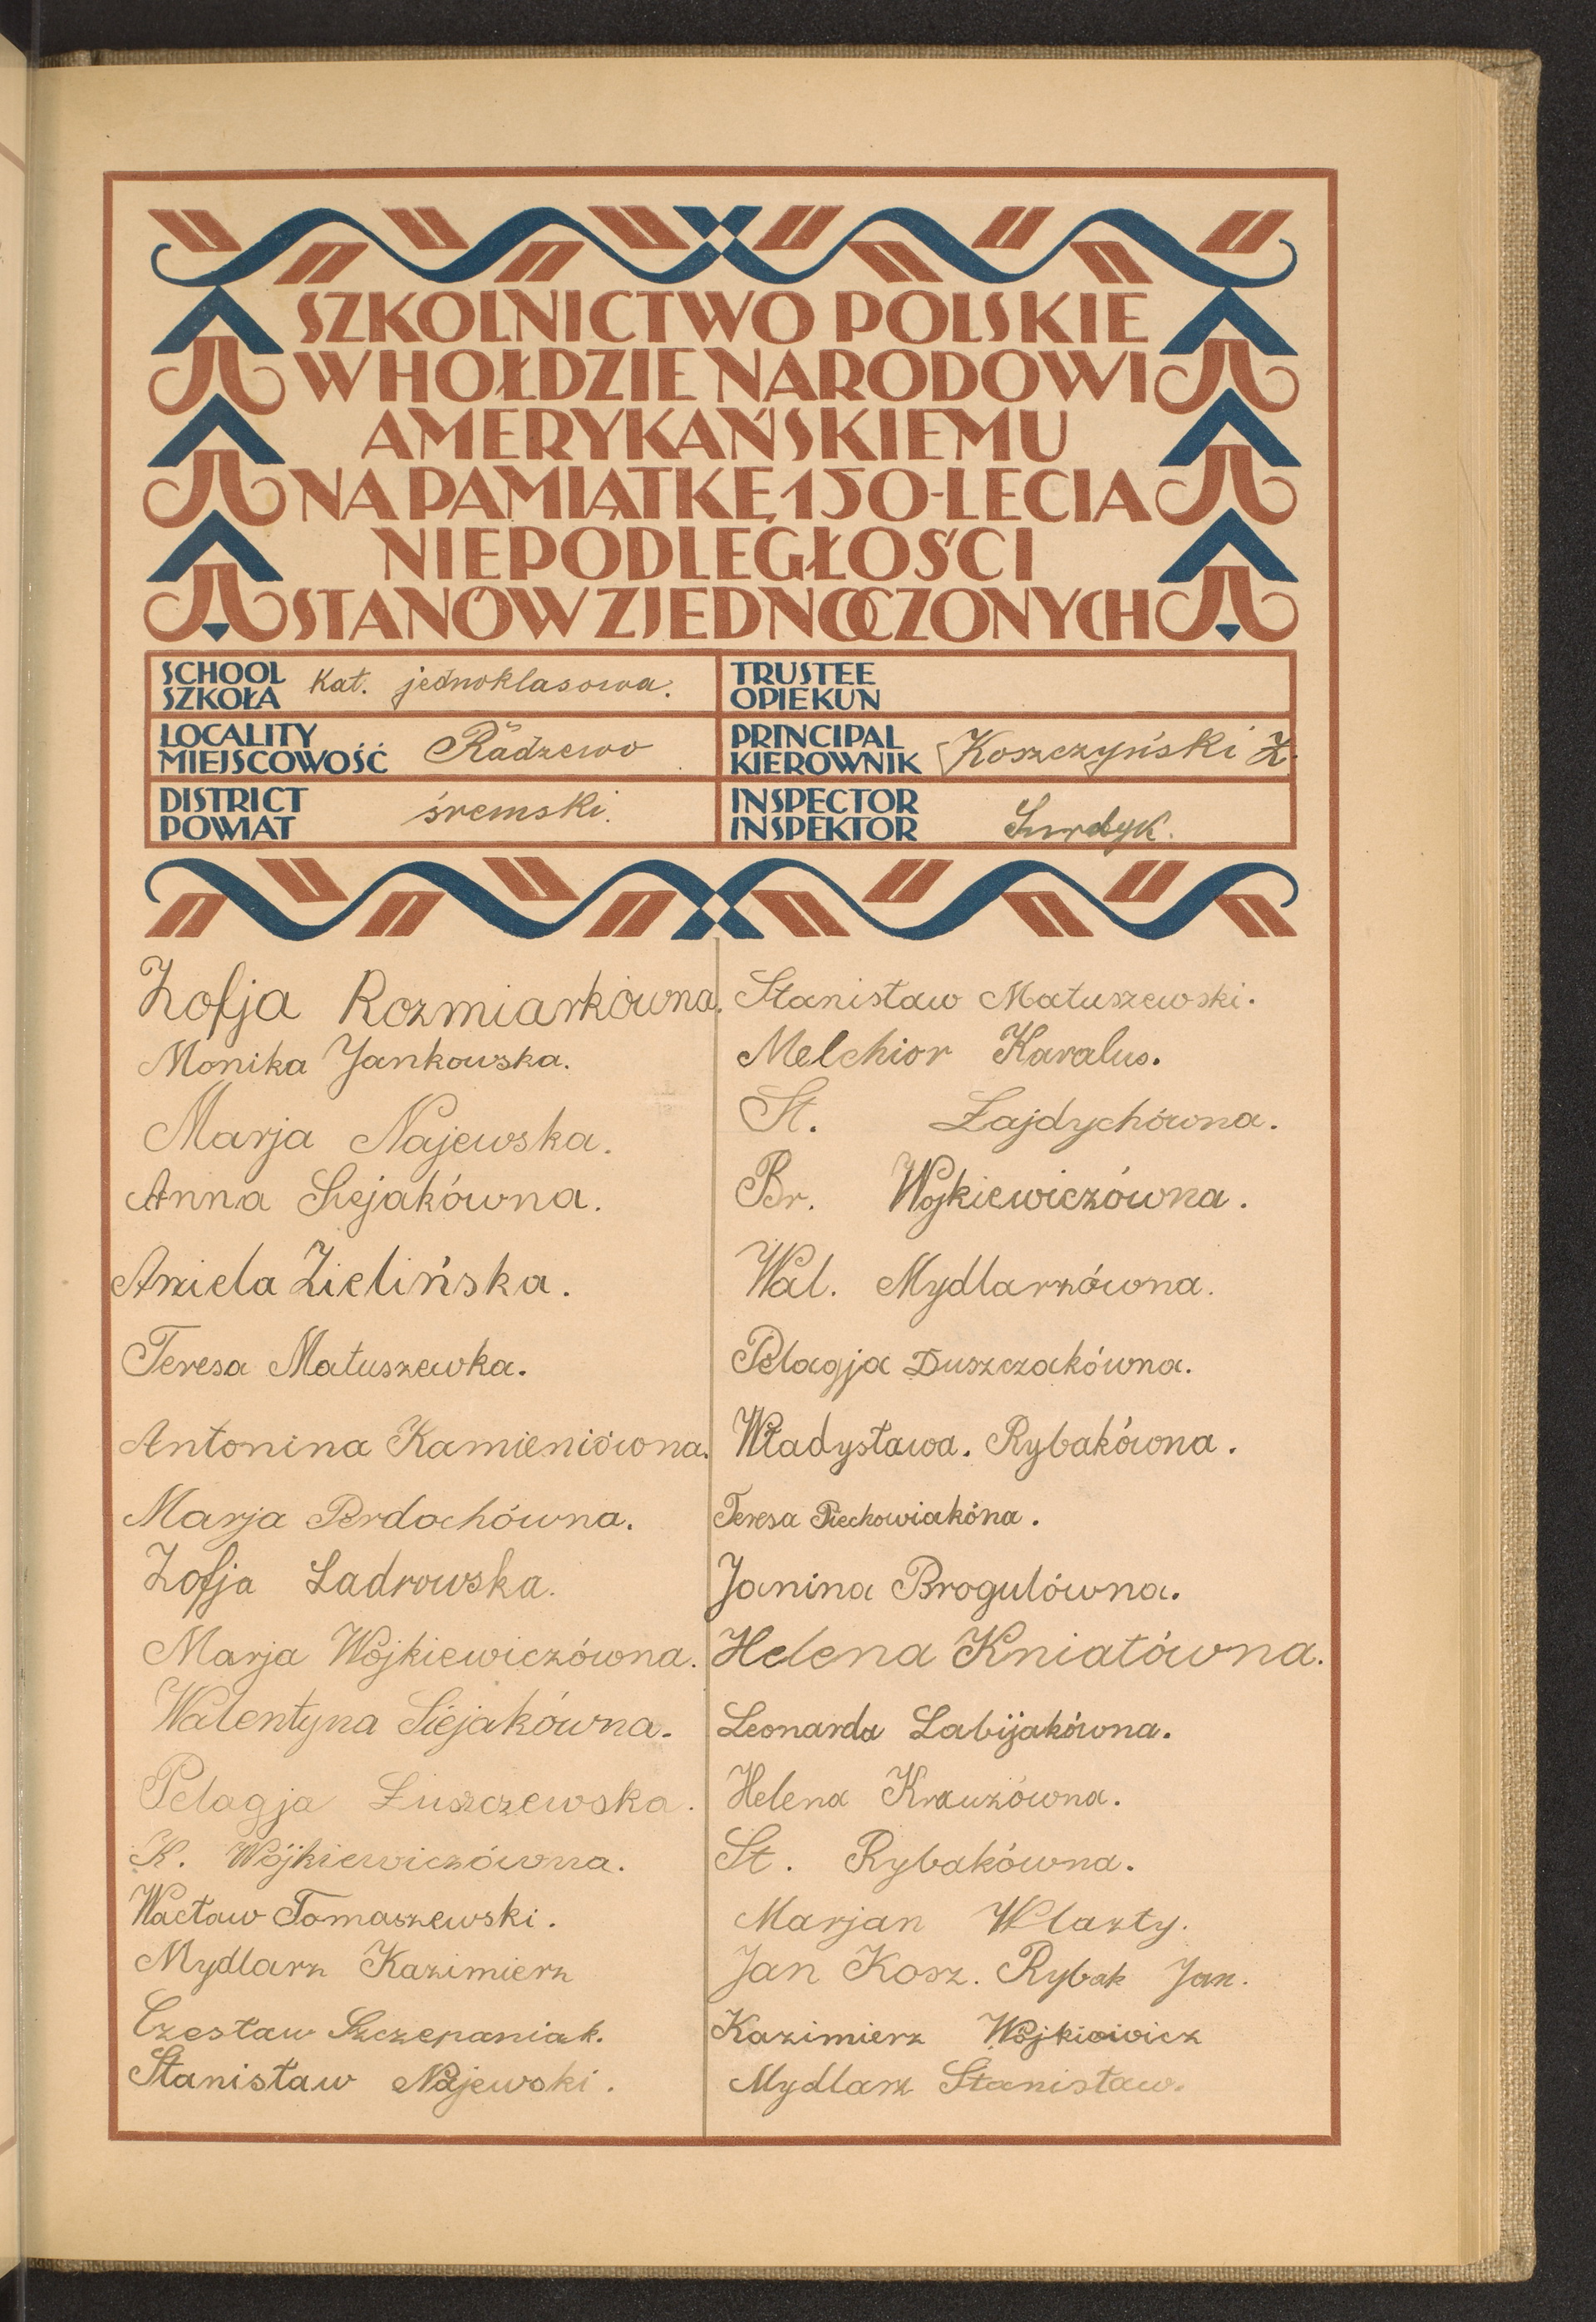 SZKOLNICTWO POLSKIE
W HOŁDZIE NARODOWI
AMERYKAŃSKIEMU
NA PAMIĄTKĘ 150-LECIA
NIEPODLEGŁOŚCI
STANÓW ZJEDNOCZONYCH
SCHOOL
SZKOŁA
Kat. jednoklasowa.
TRUSTEE
OPIEKUN
LOCALITY
MIEJSCOWOŚĆ
Radzewo
PRINCIPAL
KIEROWNIK
Koszczyński Z.
DISTRICT
POWIAT
śremski.
INSPECTOR
INSPEKTOR
Surdyk.
Zofja Rozmiarkówna.
Monika Jankowska.
Marja Najewska.
Anna Siejakówna.
Aniela Zielińska.
Teresa Matuszewka.
Antonina Kamieniówna.
Marja Perdochówna.
Zofja Ladrowska.
Marja Wojkiewiczówna.
Walentyna Siejakówna.
Pelagja Łuszczewska.
K. Wójkiewiczówna.
Wacław Tomaszewski.
Mydlarz Kazimierz
Czesław Szczepaniak.
Stanisław Najewski.
Stanisław Matuszewski.
Melchior Karalus.
St. Łajdychówna.
Br. Wojkiewiczówna.
Wal. Mydlarzówna.
Pelagja Duszczakówna.
Władysława. Rybakówna.
Teresa Piechowiakóna.
Janina Brogulówna.
Helena Kniatówna.
Leonarda Labijakówna.
Helena Krauzówna.
St. Rybakówna.
Marjan Wlazły.
Jan Kosz. Rybak Jan.
Kazimierz Wojkiewicz
Mydlarz Stanisław.